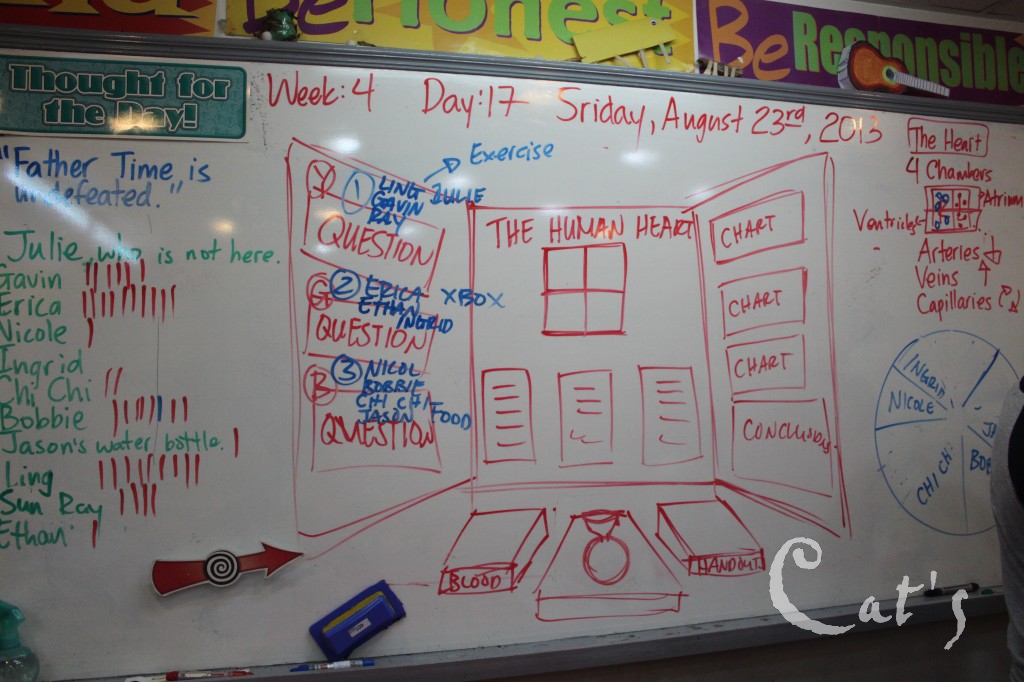 Be Honest
Be Responsible
Thought for
the Day!
Week: 4 Day: 17 Sriday, August 23rd, 2013
"Father Time is
undefeated."
Julie, who is not here.
Gavin
Erica
Nicole
Ingrid
Chi Chi
Bobbie
Jason's water bottle.
Ling
Sun Ray
Ethan
Y
1 LING JULIE
GAVIN
RAY
Exercise
QUESTION
G
2 ERICA XBOX
ETHAN
INGRID
QUESTION
B
3 NICOL
BOBBIE
CHI CHI
JASON FOOD
QUESTION
THE HUMAN HEART
CHART
CHART
CHART
CONCLUSION
BLOOD
HANDOUT
The Heart
4 Chambers
Atrium
Ventricles
Arteries
Veins
Capillaries
INGRID
NICOLE
CHI CHI
JA
BOB
Cat's